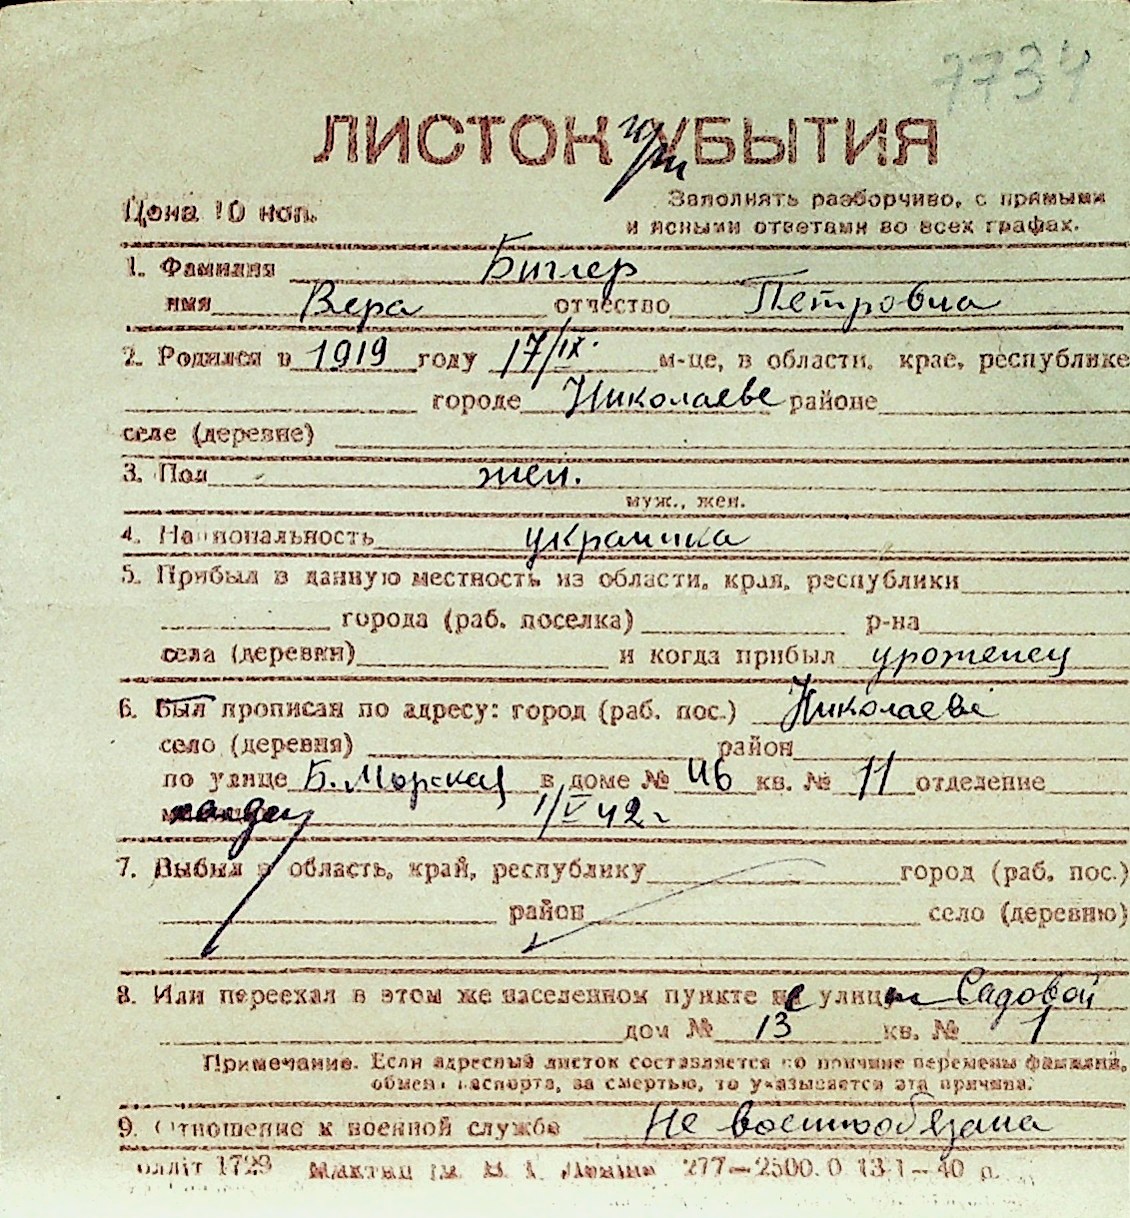 7734
ЛИСТОК УБЫТИЯ
Цена 10 коп.
Заполнять разборчиво, с прямыми
и ясными ответами во всех графах.
1. Фамилия Биглер
имя Вера отчество Петровна
2. Родился в 1919 году 17/IX. м-це, в области, крае, республике
городе Николаеве районе
селе (деревне)
3. Пол жен.
муж., жен.
4. Национальность украинка
5. Прибыл в данную местность из области, края, республики
города (раб. поселка) р-на
села (деревни) и когда прибыл уроженец
6. Был прописан по адресу: город (раб. пос.) Николаеве
село (деревня) район
по улице Б. Морская в доме № 46 кв. № 11 отделение
1/V 42 г
7. Выбыл в область, край, республику город (раб. пос.)
район село (деревню)
8. Или переехал в этом же населенном пункте с улицы Садовой
дом № 13 кв. № 1
Примечание. Если адресный листок составляется по причине перемены фамилии,
обмена паспорта, за смертью, то указывается эта причина.
9. Отношение к военной службе Не военнообязана
1729 277—2500.0 13-1—40 р.